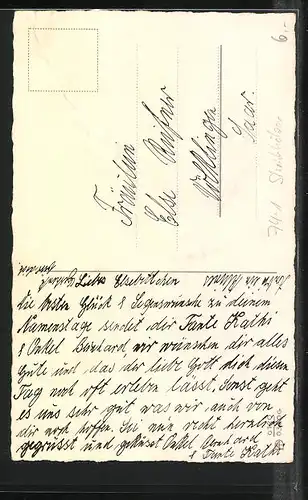 Fräulein
Else
Völklingen
Saar.
6.-
Liebes Elsebettchen
die besten Glück & Segenswünsche zu deinem
Namenstage sendet dir Tante Kathi
& Onkel Bernhard, wir wünschen dir alles
Gute und, das der liebe Gott dich diesen
Tag noch oft erleben lässt. Sonst geht
es uns sehr gut was wir auch von
dir noch hoffen. Sei nun recht herzlich
gegrüsst und geküsst Onkel Bernhard
& Tante Kathi